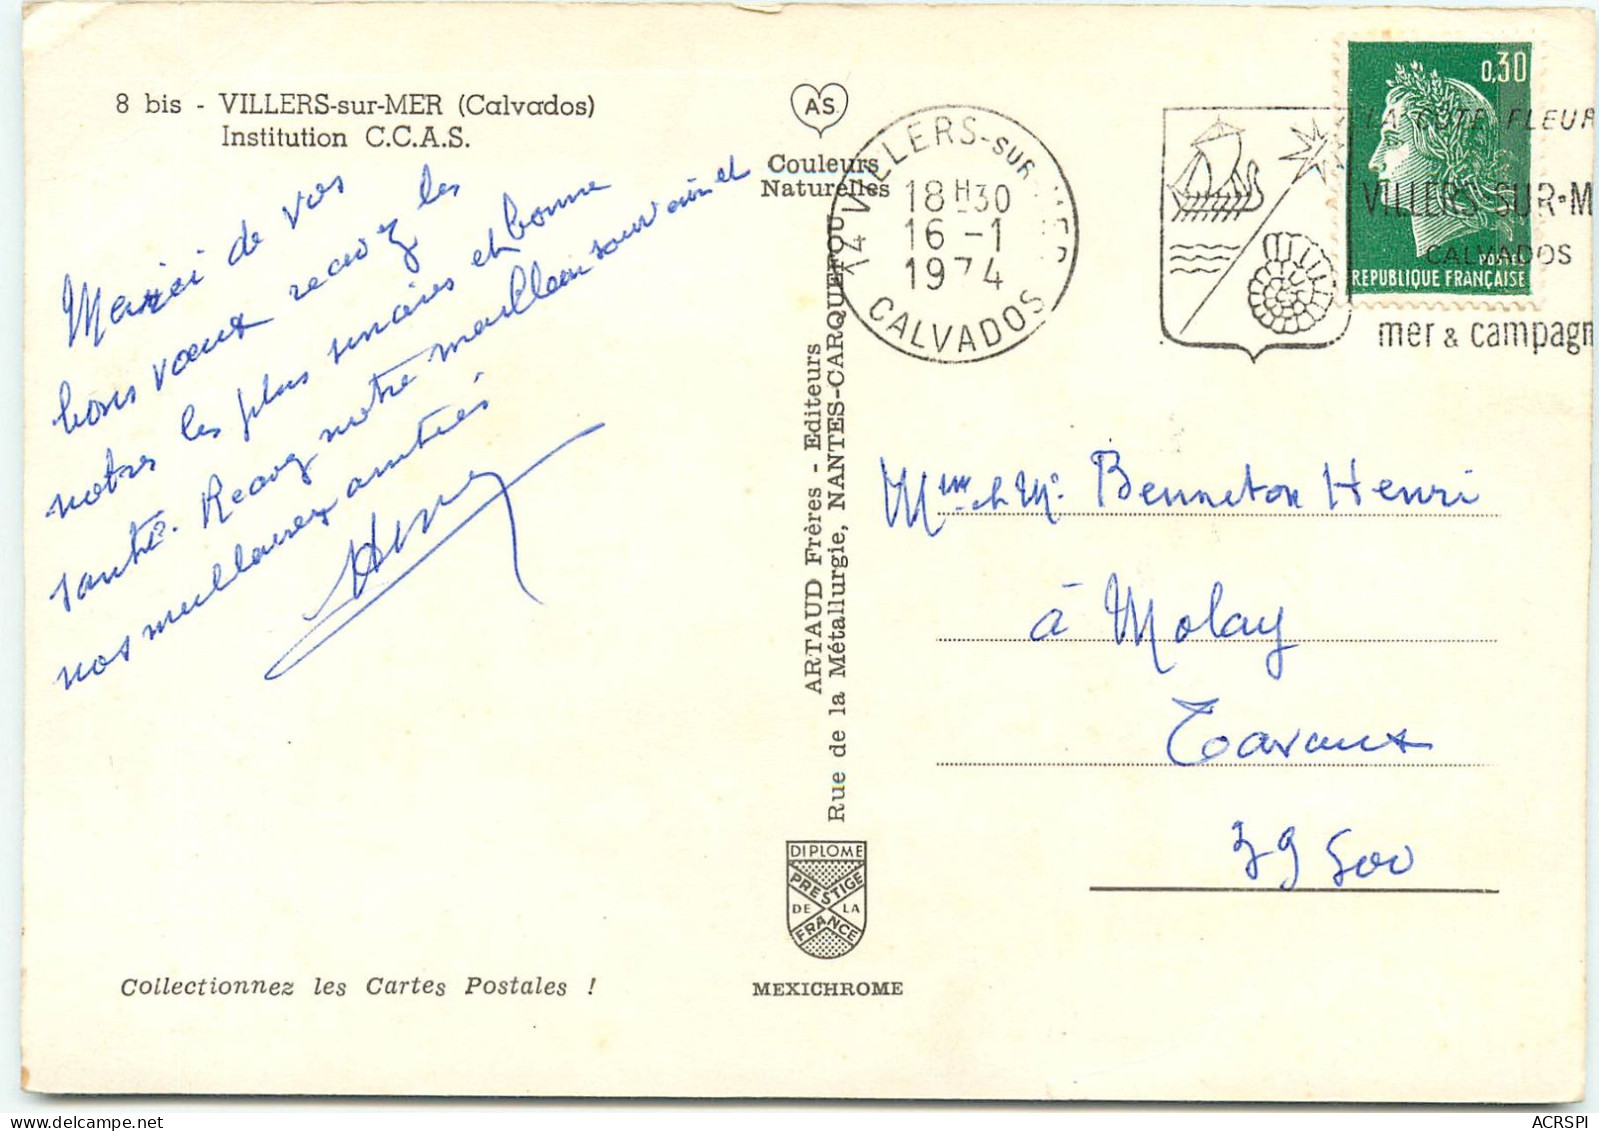 8 bis - VILLERS-sur-MER (Calvados)
Institution C.C.A.S.
Merci de vos
bons vœux recevez les
notres les plus sincères et bonne
santé. Recevez notre meilleur souvenir et
nos meilleures amitiés
Henry
Collectionnez les Cartes Postales !
A.S.
Couleurs
Naturelles
ARTAUD Frères - Editeurs
Rue de la Métallurgie, NANTES-CARQUEFOU
DIPLOME
PRESTIGE
DE LA
FRANCE
MEXICHROME
14 VILLERS-SUR-MER
18H30
16 -1
1974
CALVADOS
0,30
POSTES
REPUBLIQUE FRANÇAISE
LA CÔTE FLEUR
VILLERS-SUR-M
CALVADOS
mer & campagn
Mme et Mr Benneton Henri
à Molay
Tavaux
39500
www.delcampe.net
ACRSPI